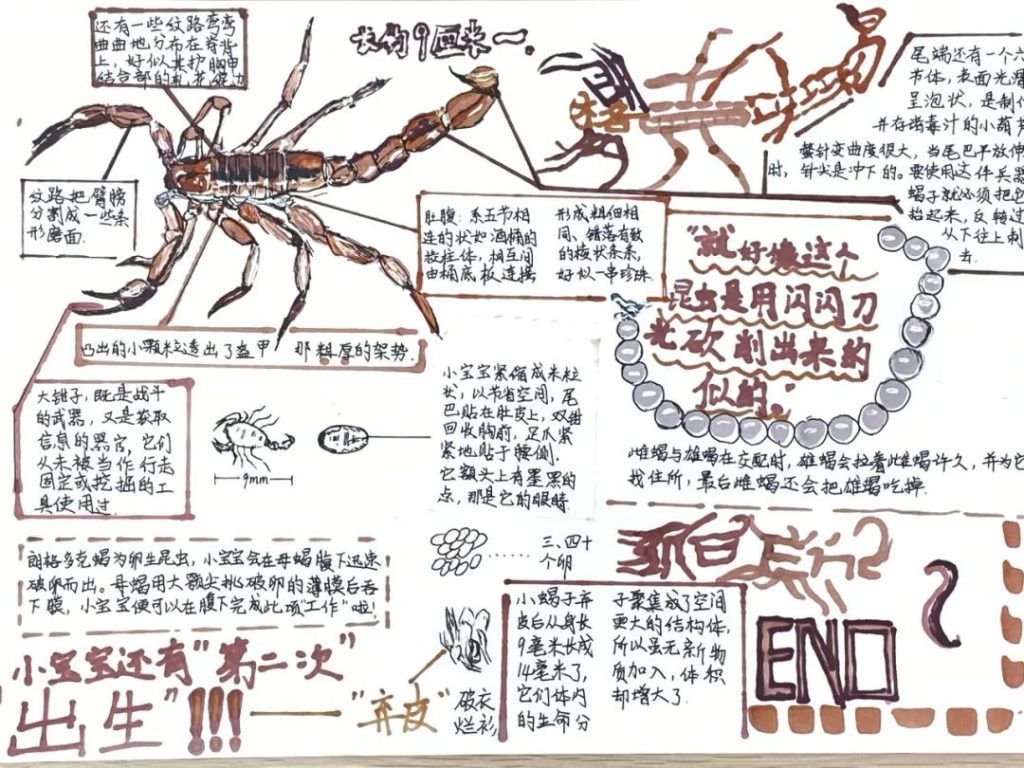 长约9厘米一.
还有一些纹路弯弯
曲曲地分布在脊背
上,好似其护胸甲
结合部的轧花绲边
纹路把臂膀
分割成一些条
形磨面.
尾端还有一个六
节体,表面光滑
呈泡状,是制作
并存储毒汁的小葫芦
螫针变曲度很大,当尾巴平放伸
时,针尖是冲下的。要使用这件兵器
蝎子就必须把它
抬起来,反转过
从下往上刺
去.
肚腹:系五节相
连的状如酒桶的
棱柱体,相互间
由桶底板连接
形成粗细相
同、错落有致
的棱状条条,
好似一串珍珠.
"就好像这个
昆虫是用闪闪刀
光砍削出来的
似的。"
凸出的小颗粒透出了盔甲 那粗厚的架势.
大钳子,既是战斗
的武器,又是获取
信息的器官,它们
从未被当作行走
固定或挖掘的工
具使用过.
9mm
小宝宝紧缩成米粒
状,以节省空间,尾
巴贴在肚皮上,双钳
回收胸前,足爪紧
紧地贴于腰侧.
它额头上有墨黑的
点,那是它的眼睛.
雌蝎与雄蝎在交配时,雄蝎会拉着雌蝎许久,并为它
找住所,最后雌蝎还会把雄蝎吃掉.
朗格多克蝎为卵生昆虫,小宝宝会在母蝎腹下迅速
破卵而出。母蝎用大颚尖挑破卵的薄膜后吞
下腹,小宝宝便可以在腹下完成此项"工作"啦!
三、四十
个卵
小宝宝还有"第二次"
"出生"!!!
"弃皮"
破衣
烂衫,
小蝎子弃
皮后从身长
9毫米长成
14毫米了,
它们体内
的生命分
子聚集成了空间
更大的结构体,
所以虽无新物
质加入,体积
却增大了.
END